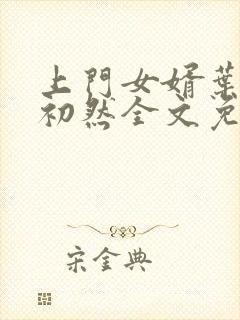 上門女婿葉
初然全文免
宋金典